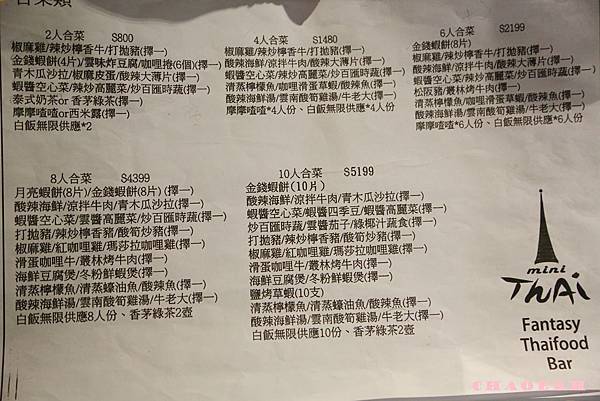 合菜類
2人合菜 $800
椒麻雞/辣炒檸香牛/打拋豬(擇一)
金錢蝦餅(4片)/雲味炸豆腐/咖哩捲(6個)(擇一)
青木瓜沙拉/椒麻皮蛋/酸辣大薄片(擇一)
蝦醬空心菜/辣炒高麗菜/炒百匯時蔬(擇一)
泰式奶茶or 香茅綠茶(擇一)
摩摩喳喳or西米露(擇一)
白飯無限供應*2
4人合菜 $1480
椒麻雞/辣炒檸香牛/打拋豬(擇一)
酸辣海鮮/涼拌牛肉/酸辣大薄片(擇一)
蝦醬空心菜/辣炒高麗菜/炒百匯時蔬(擇一)
清蒸檸檬魚/咖哩滑蛋草蝦/酸辣魚(擇一)
酸辣海鮮湯/雲南酸筍雞湯/牛老大(擇一)
摩摩喳喳*4人份、白飯無限供應*4人份
6人合菜 $2199
金錢蝦餅(8片)
椒麻雞/辣炒檸香牛/打拋豬(擇一)
酸辣海鮮/涼拌牛肉/酸辣大薄片(擇一)
蝦醬空心菜/辣炒高麗菜/炒百匯時蔬(擇一)
松阪豬/叢林烤牛肉(擇一)
清蒸檸檬魚/咖哩滑蛋蝦/酸辣魚(擇一)
酸辣海鮮湯/雲南酸筍雞湯/牛老大(擇一)
摩摩喳喳*6人份、白飯無限供應*6人份
8人合菜 $4399
月亮蝦餅(8片)/金錢蝦餅(8片)(擇一)
酸辣海鮮/涼拌牛肉/青木瓜沙拉(擇一)
蝦醬空心菜/雲醬高麗菜/炒百匯時蔬(擇一)
打拋豬/辣炒檸香豬/酸筍炒豬(擇一)
椒麻雞/紅咖哩雞/瑪莎拉咖哩雞(擇一)
滑蛋咖哩牛/叢林烤牛肉(擇一)
海鮮豆腐煲/冬粉鮮蝦煲(擇一)
清蒸檸檬魚/清蒸蠔油魚/酸辣魚(擇一)
酸辣海鮮湯/雲南酸筍雞湯/牛老大(擇一)
白飯無限供應8人份、香茅綠茶2壺
10人合菜 $5199
金錢蝦餅(10片)
酸辣海鮮/涼拌牛肉/青木瓜沙拉(擇一)
蝦醬空心菜/蝦醬四季豆/蝦醬高麗菜(擇一)
炒百匯時蔬/雲醬茄子/綠椰汁蔬食(擇一)
打拋豬/辣炒檸香豬/酸筍炒豬(擇一)
椒麻雞/紅咖哩雞/瑪莎拉咖哩雞(擇一)
滑蛋咖哩牛/叢林烤牛肉(擇一)
海鮮豆腐煲/冬粉鮮蝦煲(擇一)
鹽烤草蝦(10支)
清蒸檸檬魚/清蒸蠔油魚/酸辣魚(擇一)
酸辣海鮮湯/雲南酸筍雞湯/牛老大(擇一)
白飯無限供應10份、香茅綠茶2壺
mini
THAi
Fantasy
Thaifood
Bar